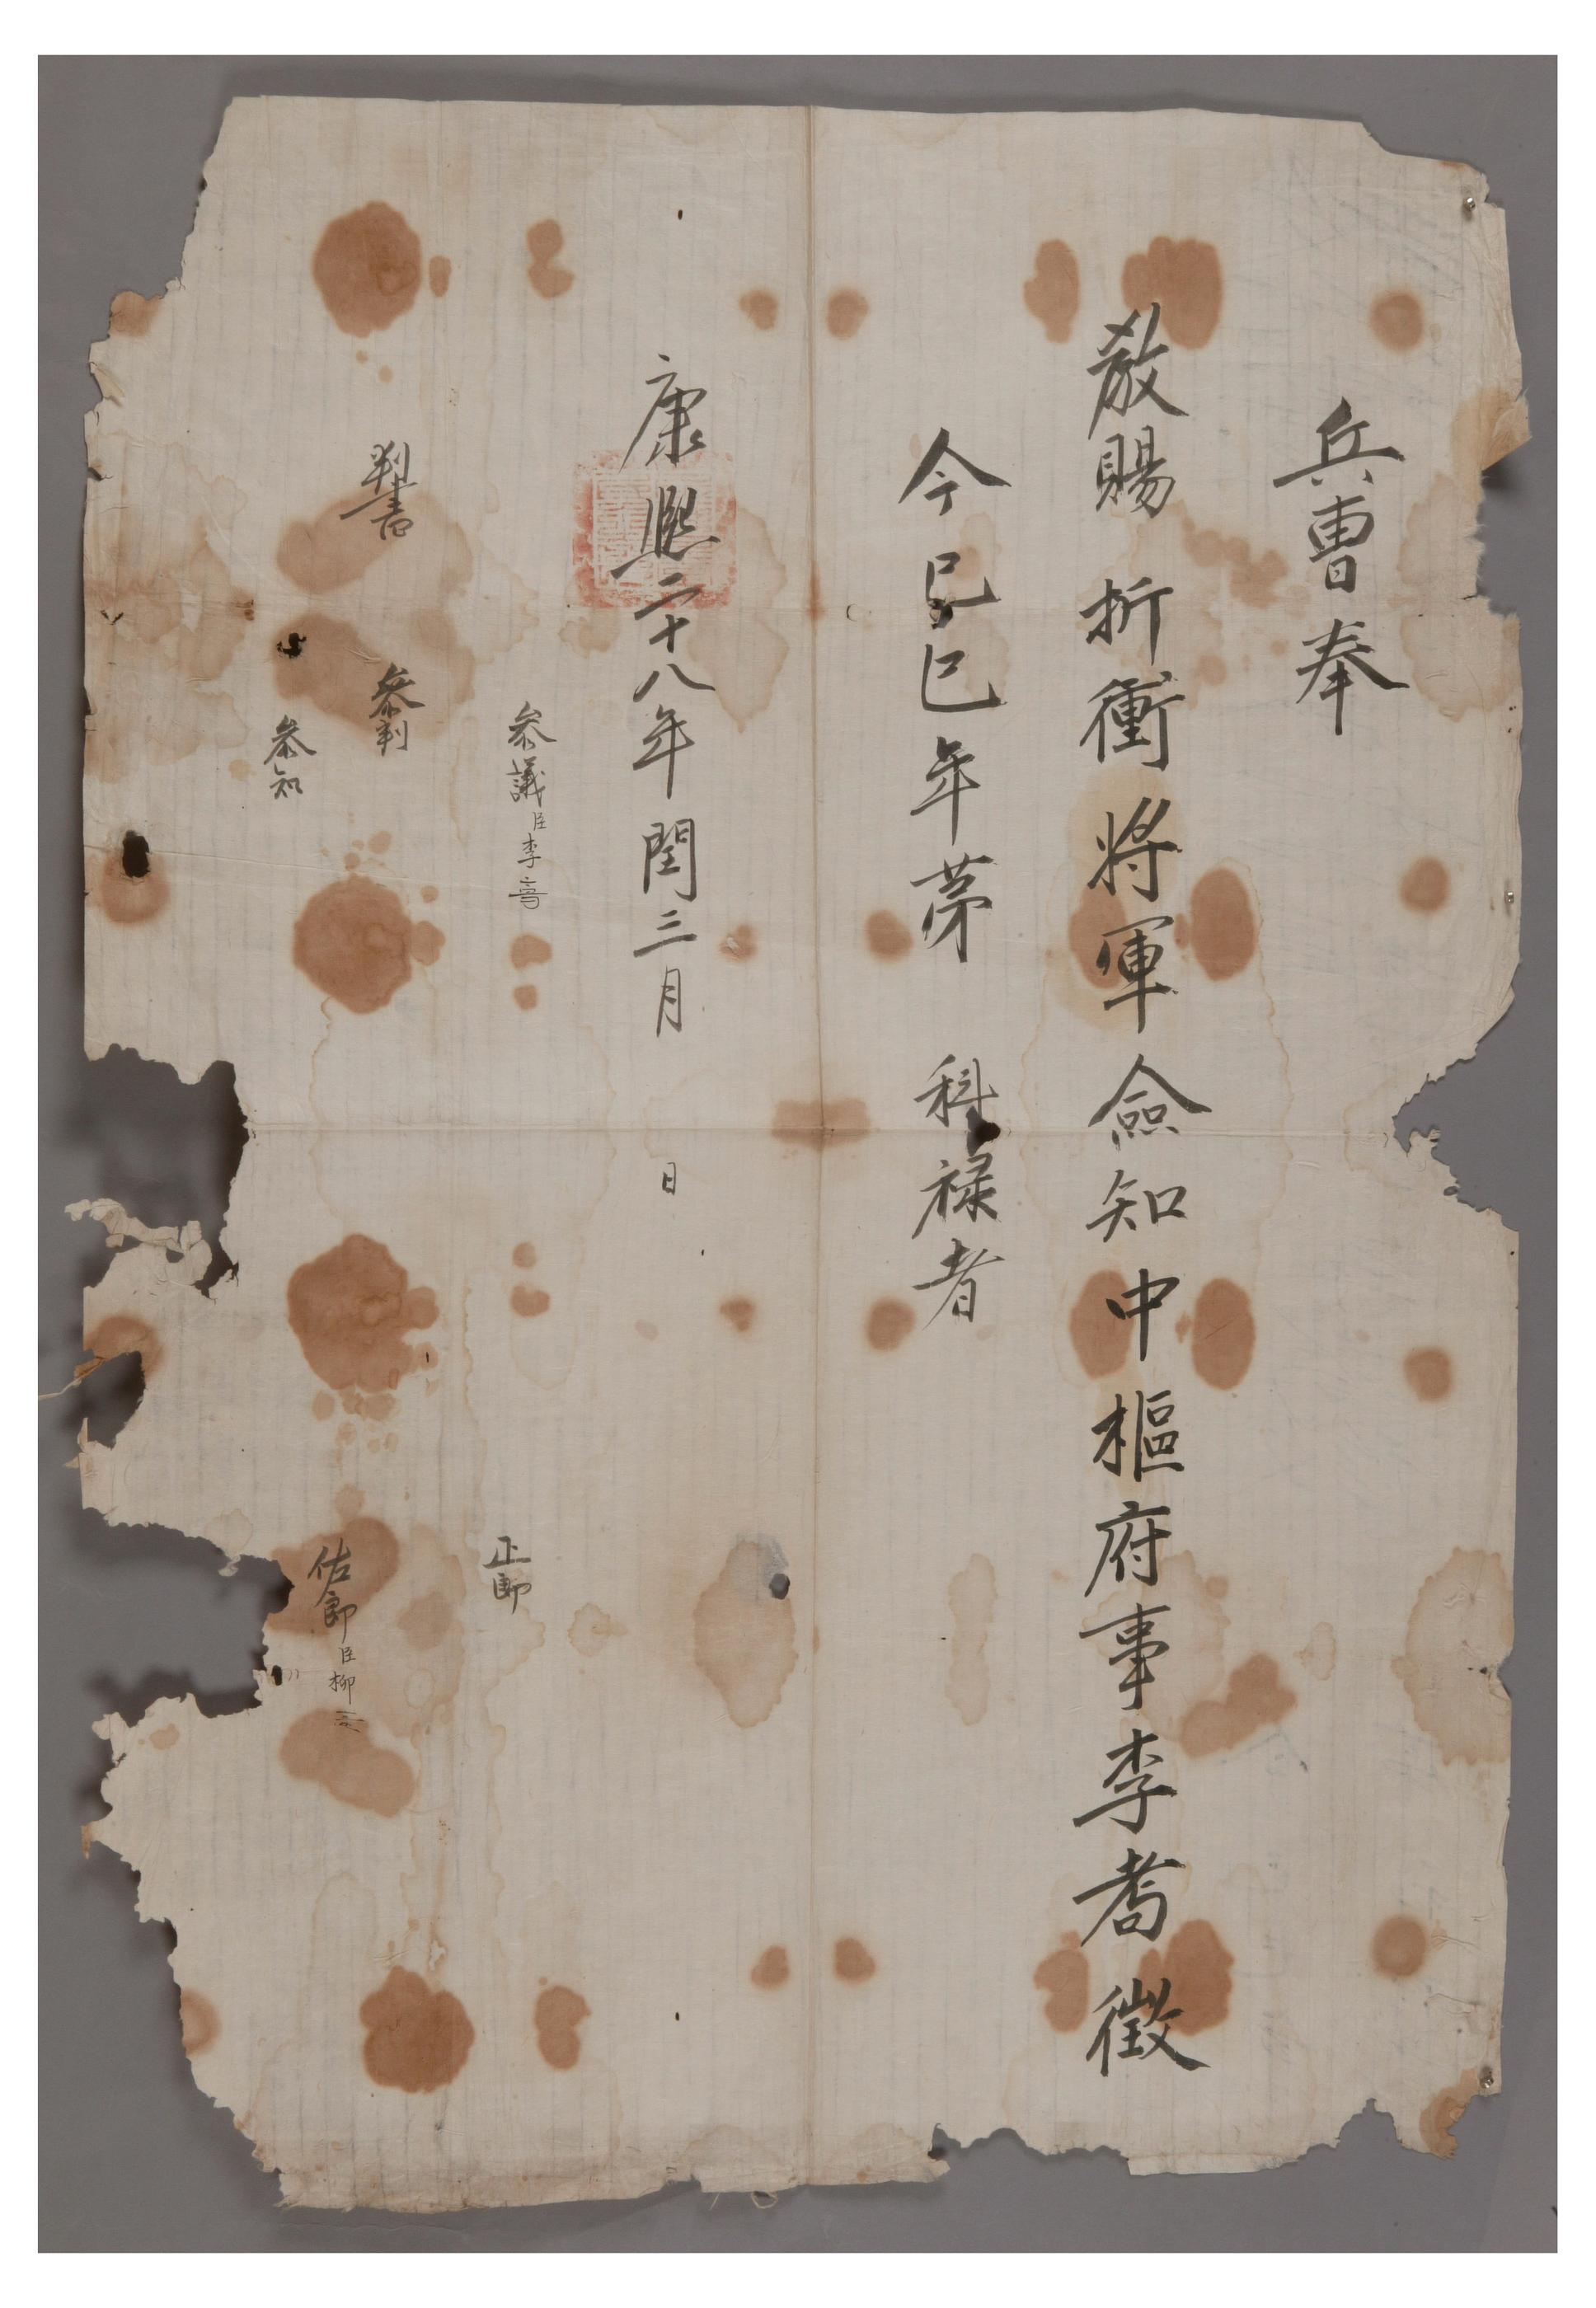 兵曹奉
敎賜折衝將軍僉知中樞府事李耇徵
今己巳年苐 科禄者
康熙二十八年閏三月 日
參議臣李
判書
參判
參知
正郎
佐郎臣柳